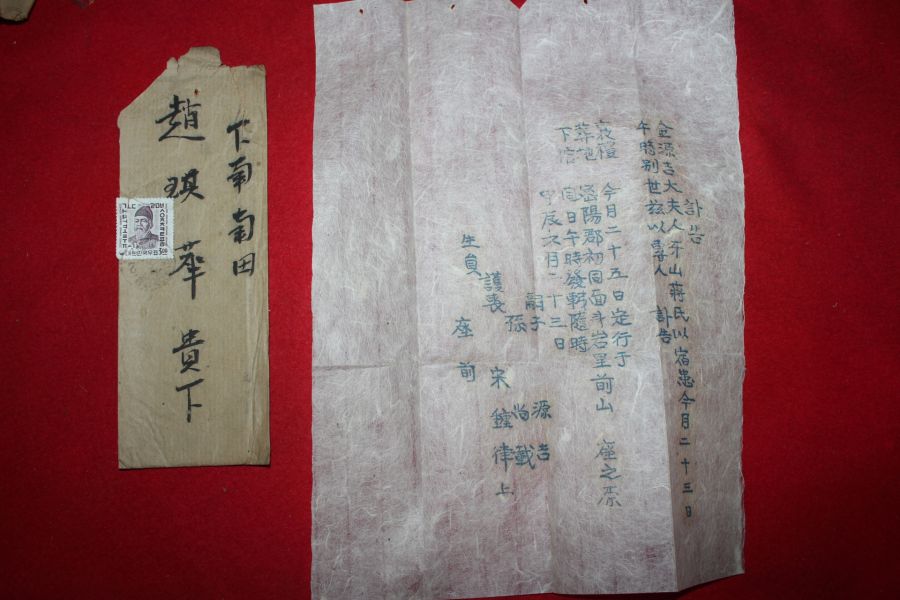 下南南田
趙琪華 貴下
대한민국우표
訃告
金源吉大夫人牙山蔣氏以宿患今月二十三日
午時別世玆以專人 訃告
今月二十五日定行于
葬地 密陽郡初同面斗岩里前山 座之原
同日午時發靷隨時
甲辰六月二十三日
嗣子 源吉
孫 尚
護喪 宋鍾律 上
生員 座前